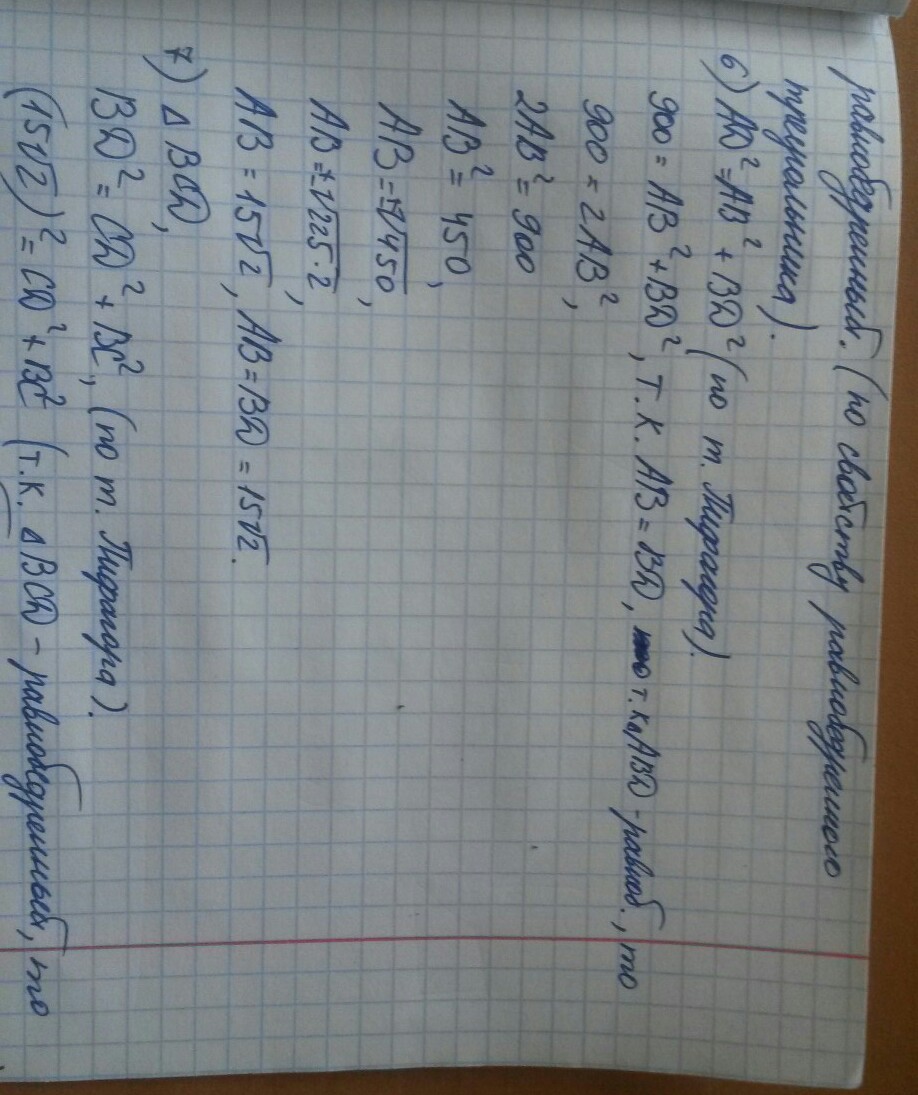 равнобедренный. (по свойству равнобедренного
треугольника).
6) AD² = AB² + BD² (по т. Пифагора).
900 = AB² + BD², т.к. AB = BD, т.к. ΔABD - равноб., то
900 = 2AB²,
2AB² = 900
AB² = 450,
AB = √450,
AB = ±√225·2,
AB = 15√2, AB = BD = 15√2.
7) Δ BCD,
BD² = CD² + BC², (по т. Пифагора).
(15√2)² = CD² + BC² (т.к. ΔBCD - равнобедренный, то